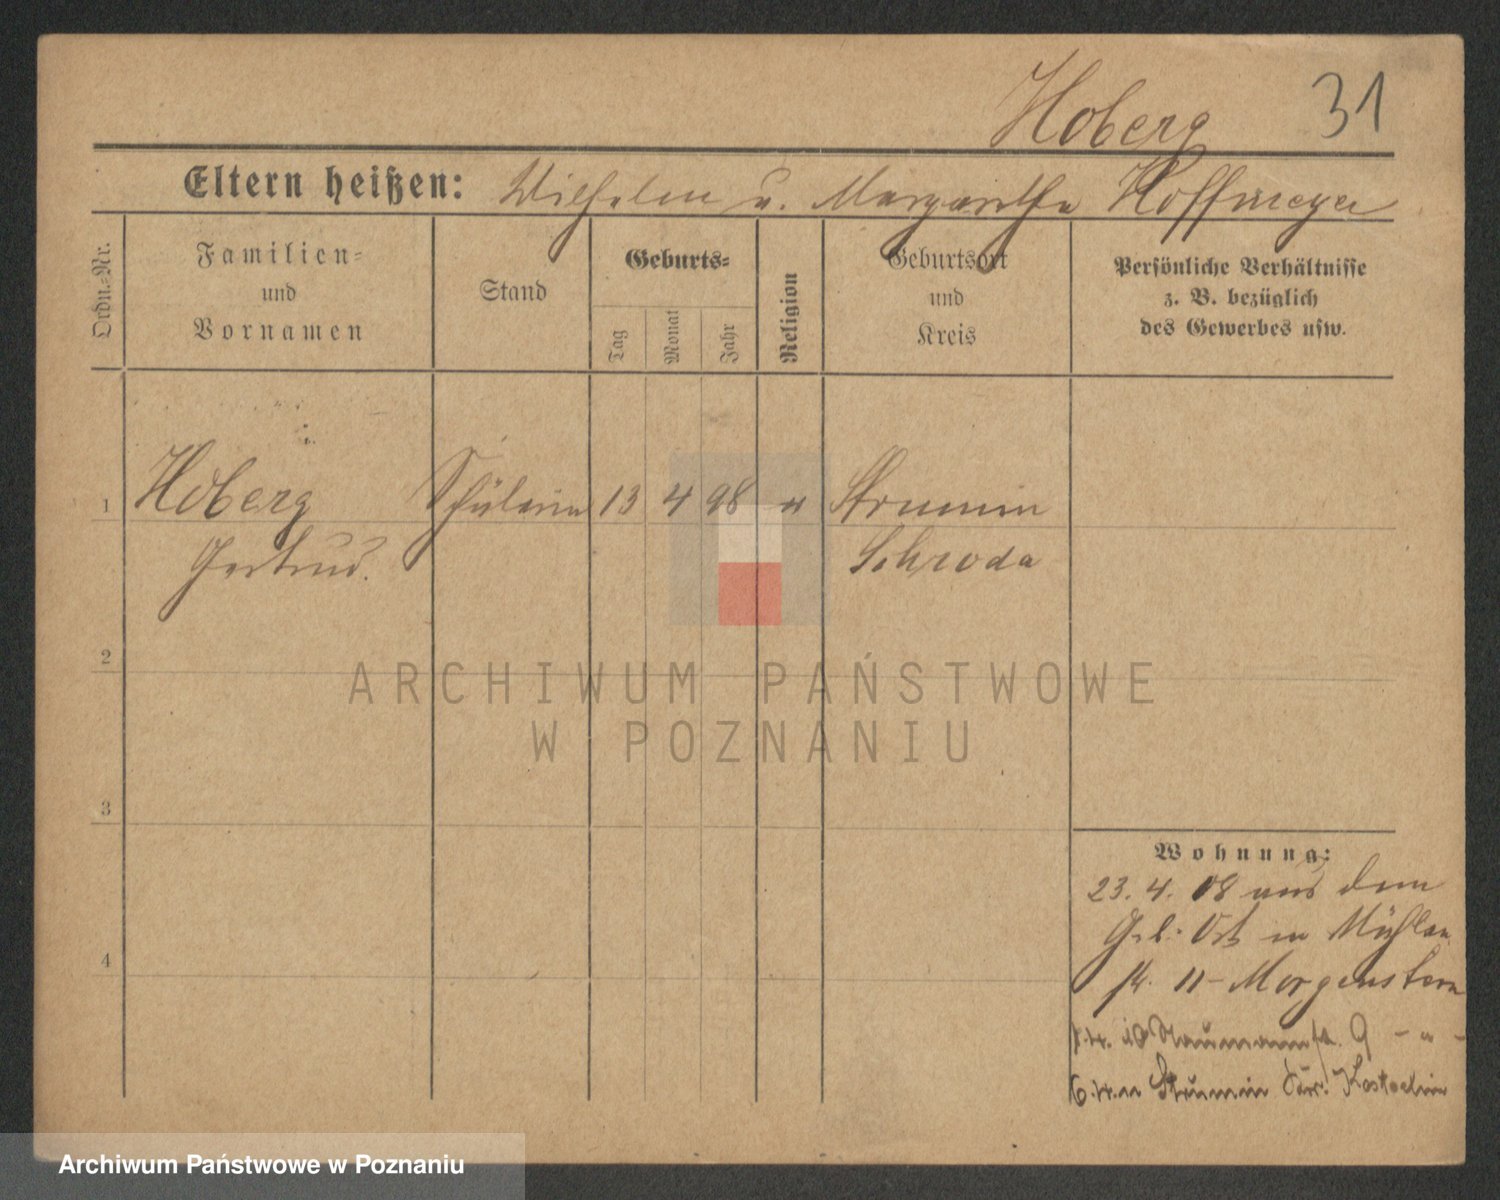 Hoberg 31
Eltern heißen: Wilhelm u. Margarethe Hoffmeyer
Ordn.-Nr.
Familien-
und
Vornamen
Stand
Geburts-
Tag
Monat
Jahr
Religion
Geburtsort
und
Kreis
Persönliche Verhältnisse
z. B. bezüglich
des Gewerbes usw.
1 Hoberg Schülerin 13 4 98 Strumin
Gertrud. Schroda
2
3
4
Wohnung:
23. 4. 08 aus dem
Geb. Ort in Mühlen
str. 11 - Morgenstern
Naumannstr. 9 - " -
6.4.11 Strumin Kostschin
ARCHIWUM PAŃSTWOWE
W POZNANIU
Archiwum Państwowe w Poznaniu